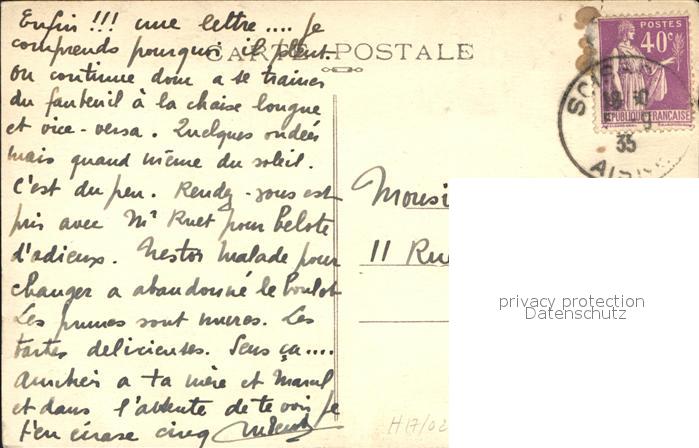 Enfin !!! une lettre .... Je
comprends pourquoi il pleut.
CARTE POSTALE
On continue donc a se trainer
du fauteuil à la chaise longue
et vice-versa. Quelques ondées
mais quand même du soleil.
C'est du peu. Rendez-vous est
pris avec Mr Ruet pour belote
d'adieux. Nestor malade pour
changer a abandonné le boulot
Les prunes sont mures. Les
tartes delicieuses. Sens ça....
Amitiés a ta mère et Marcel
et dans l'attente de te voir je
t'en écrase cinq
POSTES
40c
RÉPUBLIQUE FRANÇAISE
35
AISNE
Monsi
11 Ru
privacy protection
Datenschutz